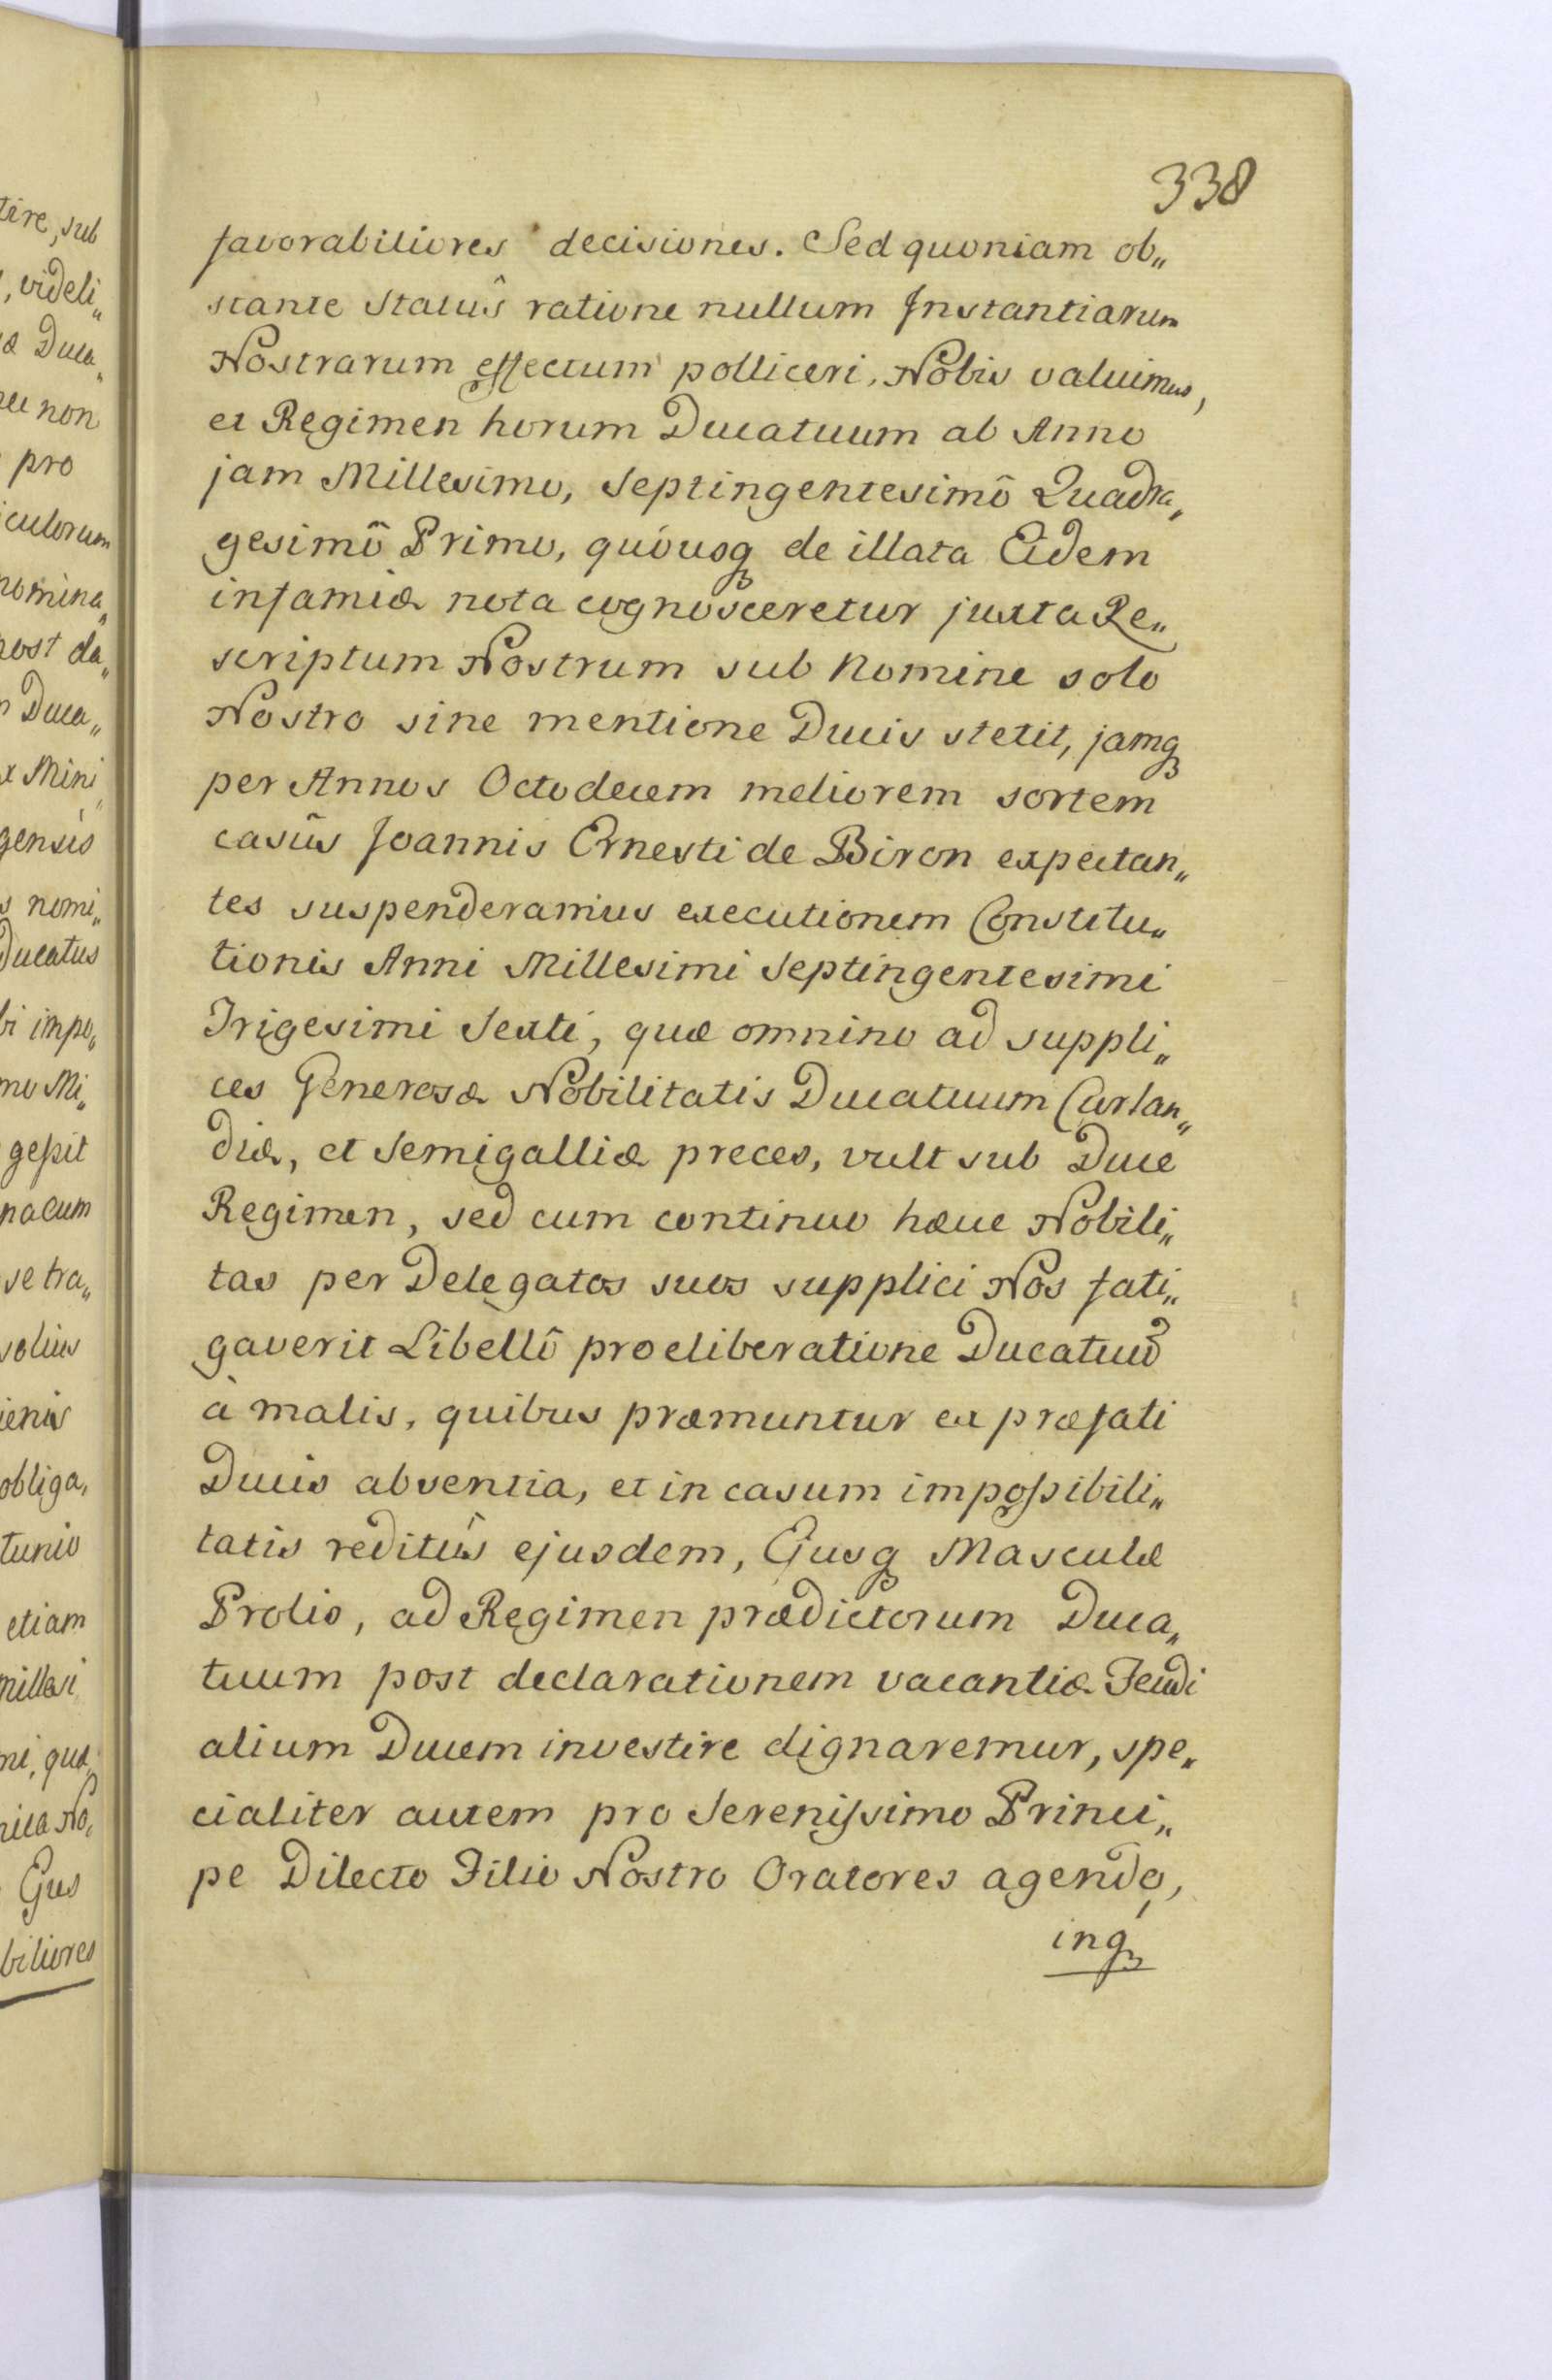 338
favorabiliores decisiones. Sed quoniam ob„
stante Statûs ratione nullum Instantiarum
Nostrarum effectum polliceri, Nobis valuimus,
et Regimen horum Ducatuum ab Anno
jam Millesimo, Septingentesimô Quadra„
gesimô Primo, quóusq de illata Eidem
infamiæ nota cognosceretur juxta Re„
scriptum Nostrum sub Nomine solo
Nostro sine mentione Ducis stetit, jamq
per Annos Octodecem meliorem sortem
casûs Joannis Ernesti de Biron expectan„
tes suspenderamus executionem Constitu„
tionis Anni Millesimi Septingentesimi
Trigesimi Sexti, quæ omnino ad suppli„
ces Generosæ Nobilitatis Ducatuum Curlan„
diæ, et Semigalliæ preces, vult sub Duce
Regimen, sed cum continuo hæc Nobili„
tas per Delegatos suos supplici Nos fati„
gaverit Libellô pro eliberatione Ducatuũ
à malis, quibus præmuntur ex præfati
Ducis absentia, et in casum impossibili„
tatis reditûs ejusdem, Ejusq Masculæ
Prolis, ad Regimen prædictorum Duca„
tuum post declarationem vacantiæ Feudi
alium Ducem investire dignaremur, spe„
cialiter autem pro Serenissimo Princi„
pe Dilecto Filio Nostro Oratores agendo,
inq
tire, sub
, videli„
æ Duca„
nec non
pro
iculorum
nomina„
post da„
Duca„
x Mini„
gensis
s nomi„
Ducatus
bi impo„
mo Mi„
gessit
nacum
se tra„
solius
ienis
obliga„
tunio
etiam
millari
ni, quæ
nica No„
Ejus
biliores